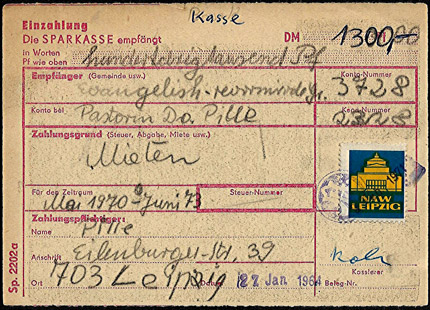 Kasse
Einzahlung
Die SPARKASSE empfängt DM 1300,-
in Worten
Pf wie oben
Empfänger (Gemeinde usw.) Konto-Nummer
3728
Konto bei Kenn-Nummer
Pastorin Do. Pille 2328
Zahlungsgrund (Steuer, Abgabe, Miete usw.)
Mieten
Für den Zeitraum Steuer-Nummer
Mai 1970 Juni 73
NAW
LEIPZIG
Zahlungspflichtiger:
Name Pille
Anschrift Eilenburger-Str. 39
Ort 703 Leipzig
27 Jan 1964
Kassierer
Beleg-Nr.
Sp. 2202a